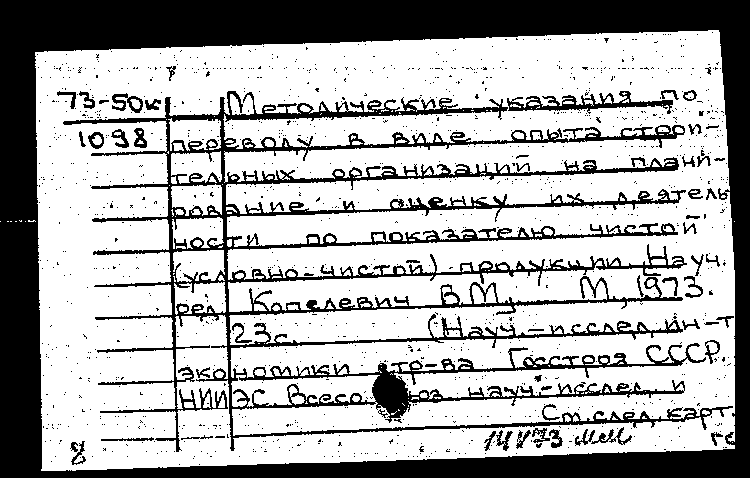 73-50к Методические указания по
1098 переводу в виде опыта строи-
тельных организаций на плани-
рование и оценку их деятель
ности по показателю чистой
(условно-чистой) продукции. Науч.
ред. Копелевич В.М. М., 1973.
23с. (Науч.-исслед. ин-т
экономики стр-ва Госстроя СССР.
НИИЭС. Всесо оз науч.-исслед. и
См. след. карт.
8 14 V 73